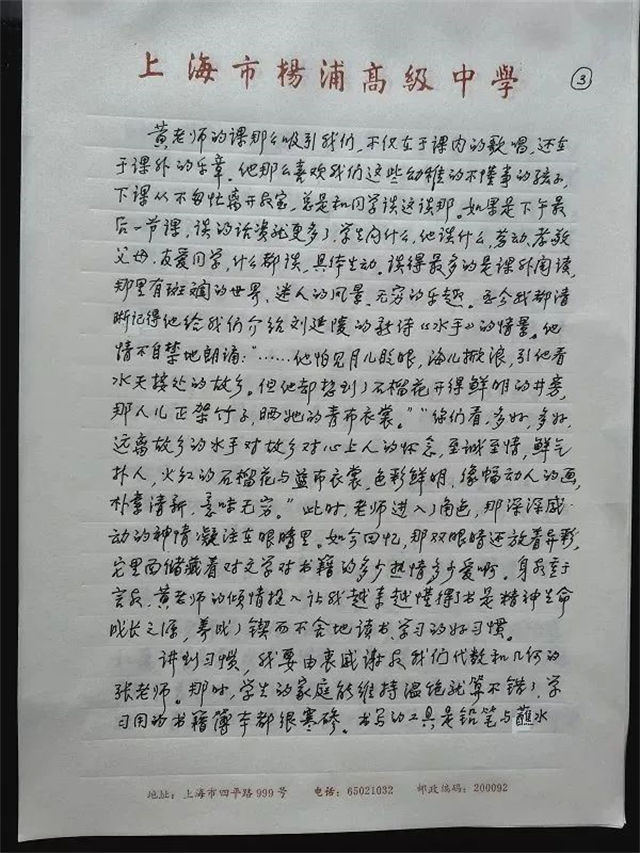 上海市楊浦高級中學
③
黄老师的课那么吸引我们，不仅在于课内的歌唱，还在
于课外的乐章。他那么喜欢我们这些幼稚的不懂事的孩子，
下课从不匆忙离开教室，总是和同学谈这谈那。如果是下午最
后一节课，谈的话资就更多了，学生问什么，他谈什么，劳动、孝敬
父母、友爱同学，什么都谈，具体生动。谈得最多的是课外阅读，
那里有斑斓的世界、迷人的风景、无穷的乐趣。至今我都清
晰记得他给我们介绍刘延陵的新诗《水手》的情景。他
情不自禁地朗诵：“……他怕见月儿眨眼，海儿掀浪，引他看
水天接处的故乡。但他却想到了石榴花开得鲜明的井旁，
那人儿正架竹子，晒她的青布衣裳。”“你们看，多好，多好，
远离故乡的水手对故乡对心上人的怀念，至诚至情，鲜气
扑人，火红的石榴花与蓝布衣裳，色彩鲜明，像幅动人的画，
朴素清新，意味无穷。”此时，老师进入了角色，那深深感
动的神情凝注在眼睛里。如今回忆，那双眼睛还放着异彩，
它里面储藏着对文学对书籍的多少热情多少爱啊。身教重于
言教，黄老师的倾情投入让我越来越懂得了书是精神生命
成长之源，养成了锲而不舍地读书、学习的好习惯。
讲到习惯，我要由衷感谢教我们代数和几何的
张老师。那时，学生的家庭能维持温饱就算不错了，学
习用的书籍簿本都很寒碜。书写的工具是铅笔与蘸水
地址：上海市四平路999号 电话：65021032 邮政编码：200092